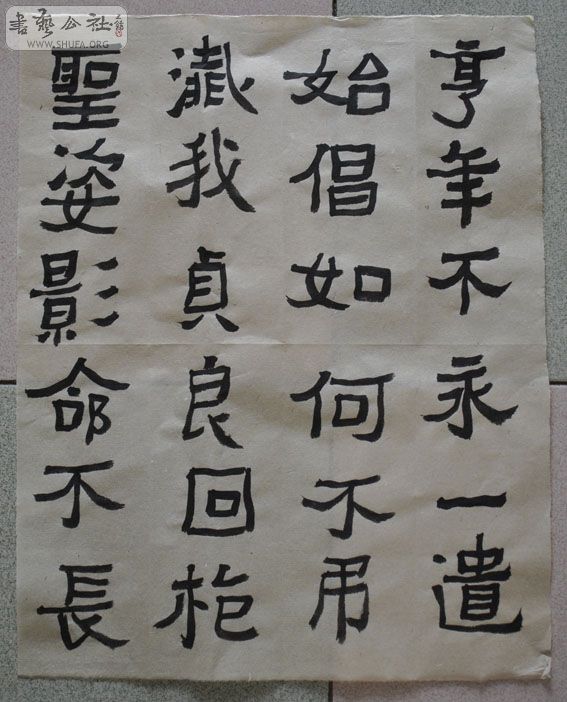 書藝公社
WWW.SHUFA.ORG
亨年不永一遺
始倡如何不弔
瀸我貞良回
聖姿影命不長